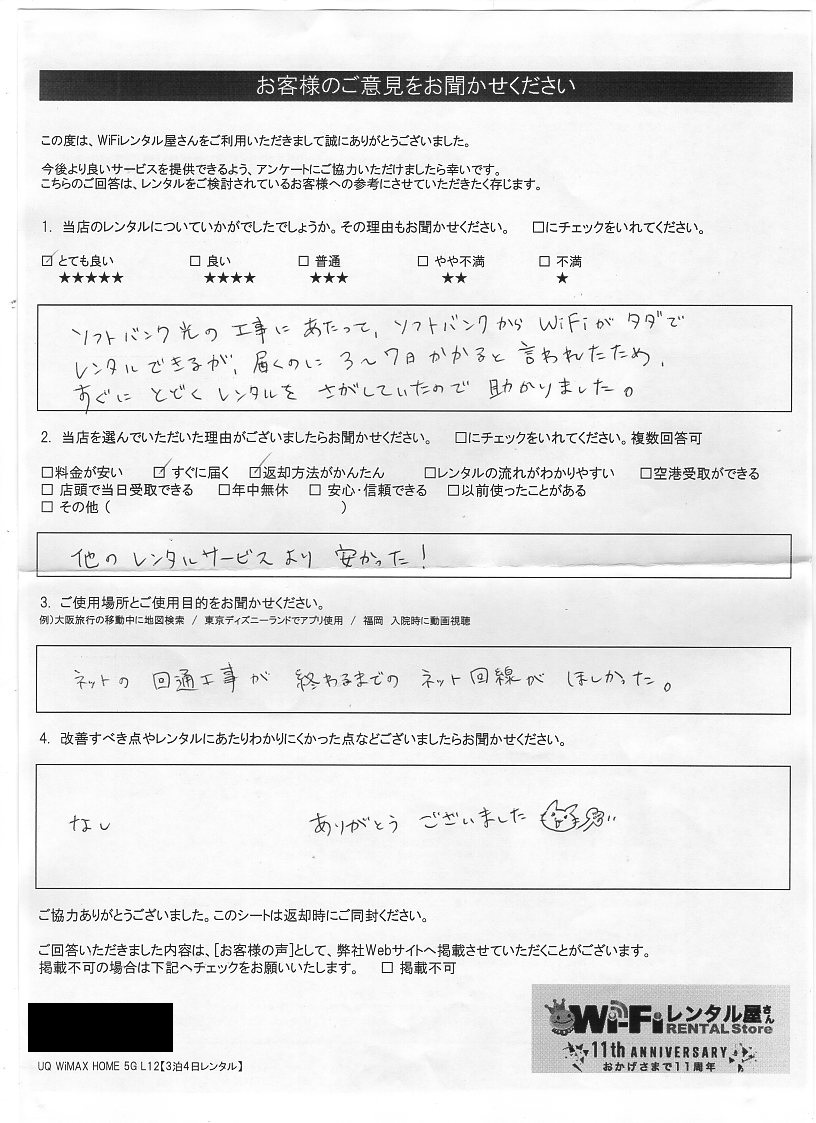 お客様のご意見をお聞かせください
この度は、WiFiレンタル屋さんをご利用いただきまして誠にありがとうございました。
今後より良いサービスを提供できるよう、アンケートにご協力いただけましたら幸いです。
こちらのご回答は、レンタルをご検討されているお客様への参考にさせていただきたく存じます。
1. 当店のレンタルについていかがでしたでしょうか。その理由もお聞かせください。 □にチェックをいれてください。
☑ とても良い □ 良い □ 普通 □ やや不満 □ 不満
★★★★★ ★★★★ ★★★ ★★ ★
ソフトバンク光の工事にあたって、ソフトバンクからWiFiがタダで
レンタルできるが、届くのに3~7日かかると言われたため、
すぐにとどくレンタルをさがしていたので助かりました。
2. 当店を選んでいただいた理由がございましたらお聞かせください。 □にチェックをいれてください。複数回答可
□料金が安い ☑ すぐに届く ☑返却方法がかんたん □レンタルの流れがわかりやすい □空港受取ができる
□ 店頭で当日受取できる □年中無休 □ 安心・信頼できる □以前使ったことがある
□ その他 ( )
他のレンタルサービスより安かった!
3. ご使用場所とご使用目的をお聞かせください。
例)大阪旅行の移動中に地図検索 / 東京ディズニーランドでアプリ使用 / 福岡 入院時に動画視聴
ネットの回通工事が終わるまでのネット回線がほしかった。
4. 改善すべき点やレンタルにあたりわかりにくかった点などございましたらお聞かせください。
なし ありがとうございました
ご協力ありがとうございました。このシートは返却時にご同封ください。
ご回答いただきました内容は、[お客様の声]として、弊社Webサイトへ掲載させていただくことがございます。
掲載不可の場合は下記へチェックをお願いいたします。 □ 掲載不可
Wi-Fiレンタル屋さん
RENTAL Store
11th ANNIVERSARY
おかげさまで11周年
UQ WiMAX HOME 5G L12【3泊4日レンタル】